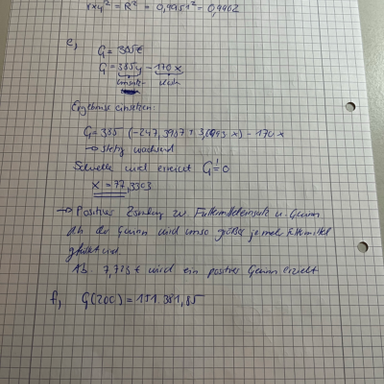 rxy² = R² = 0,4951² = 0,4402
e,
G = 385€
G = 385y - 170x
Ergebnisse einsetzen:
G = 385 (-247,3957 + 3,0993 x) - 170 x
→ stetig wachsend
Schwelle wird erreicht G = 0
x = 77,3303
→ Positiver Zusammenhang zw. Futtermitteleinsatz u. Gewinn
dh der Gewinn wird umso größer je mehr Futtermittel
gefüttert wird.
Ab 7,733 € wird ein positiver Gewinn erzielt
f, G(200) = 151.381,85